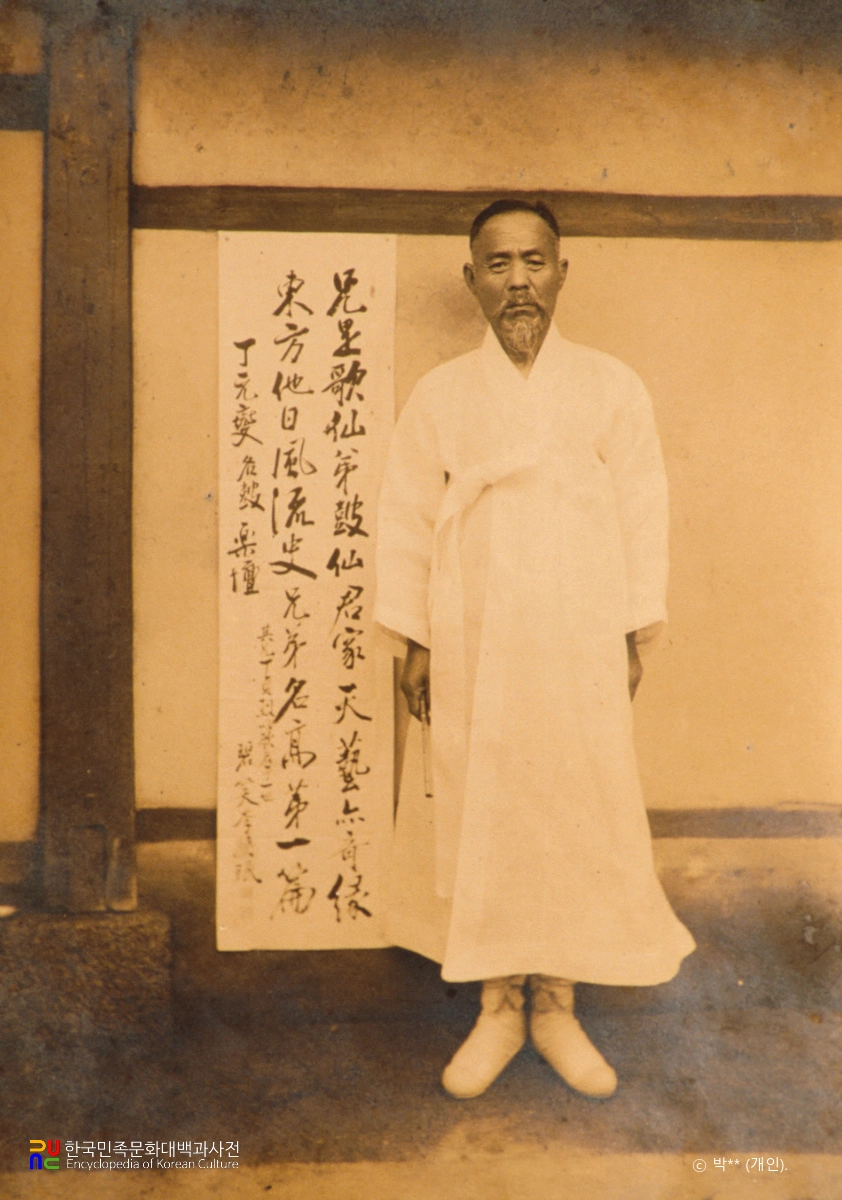 兄是歌仙弟鼓仙君家天藝亦奇緣
東方他日風流史兄弟名高第一篇
丁元燮 名鼓 楽壇
碧笑李
한국민족문화대백과사전
Encyclopedia of Korean Culture
© 박** (개인).